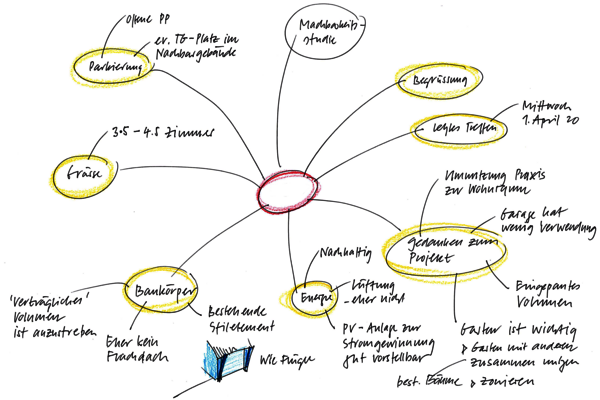 offene PP
ev. TG-Platz im
Nachbargebäude
Parkierung
Machbarkeits-
studie
Begrüssung
letztes Treffen
Mittwoch
1. April 20
3.5 - 4.5 Zimmer
Grösse
Umnutzung Praxis
zu Wohnraum
Garage hat
wenig Verwendung
gedanken zum
Projekt
Eingepasstes
Volumen
Garten ist wichtig
Garten mit anderen
zusammen nutzen
best. Bäume
zonieren
Nachhaltig
Energie
Lüftung
- eher nicht
PV-Anlage zur
Stromgewinnung
gut vorstellbar
Baukörper
'verträgliches'
Volumen
ist anzustreben
Eher kein
Flachdach
Bestehende
Stilelement
Wie